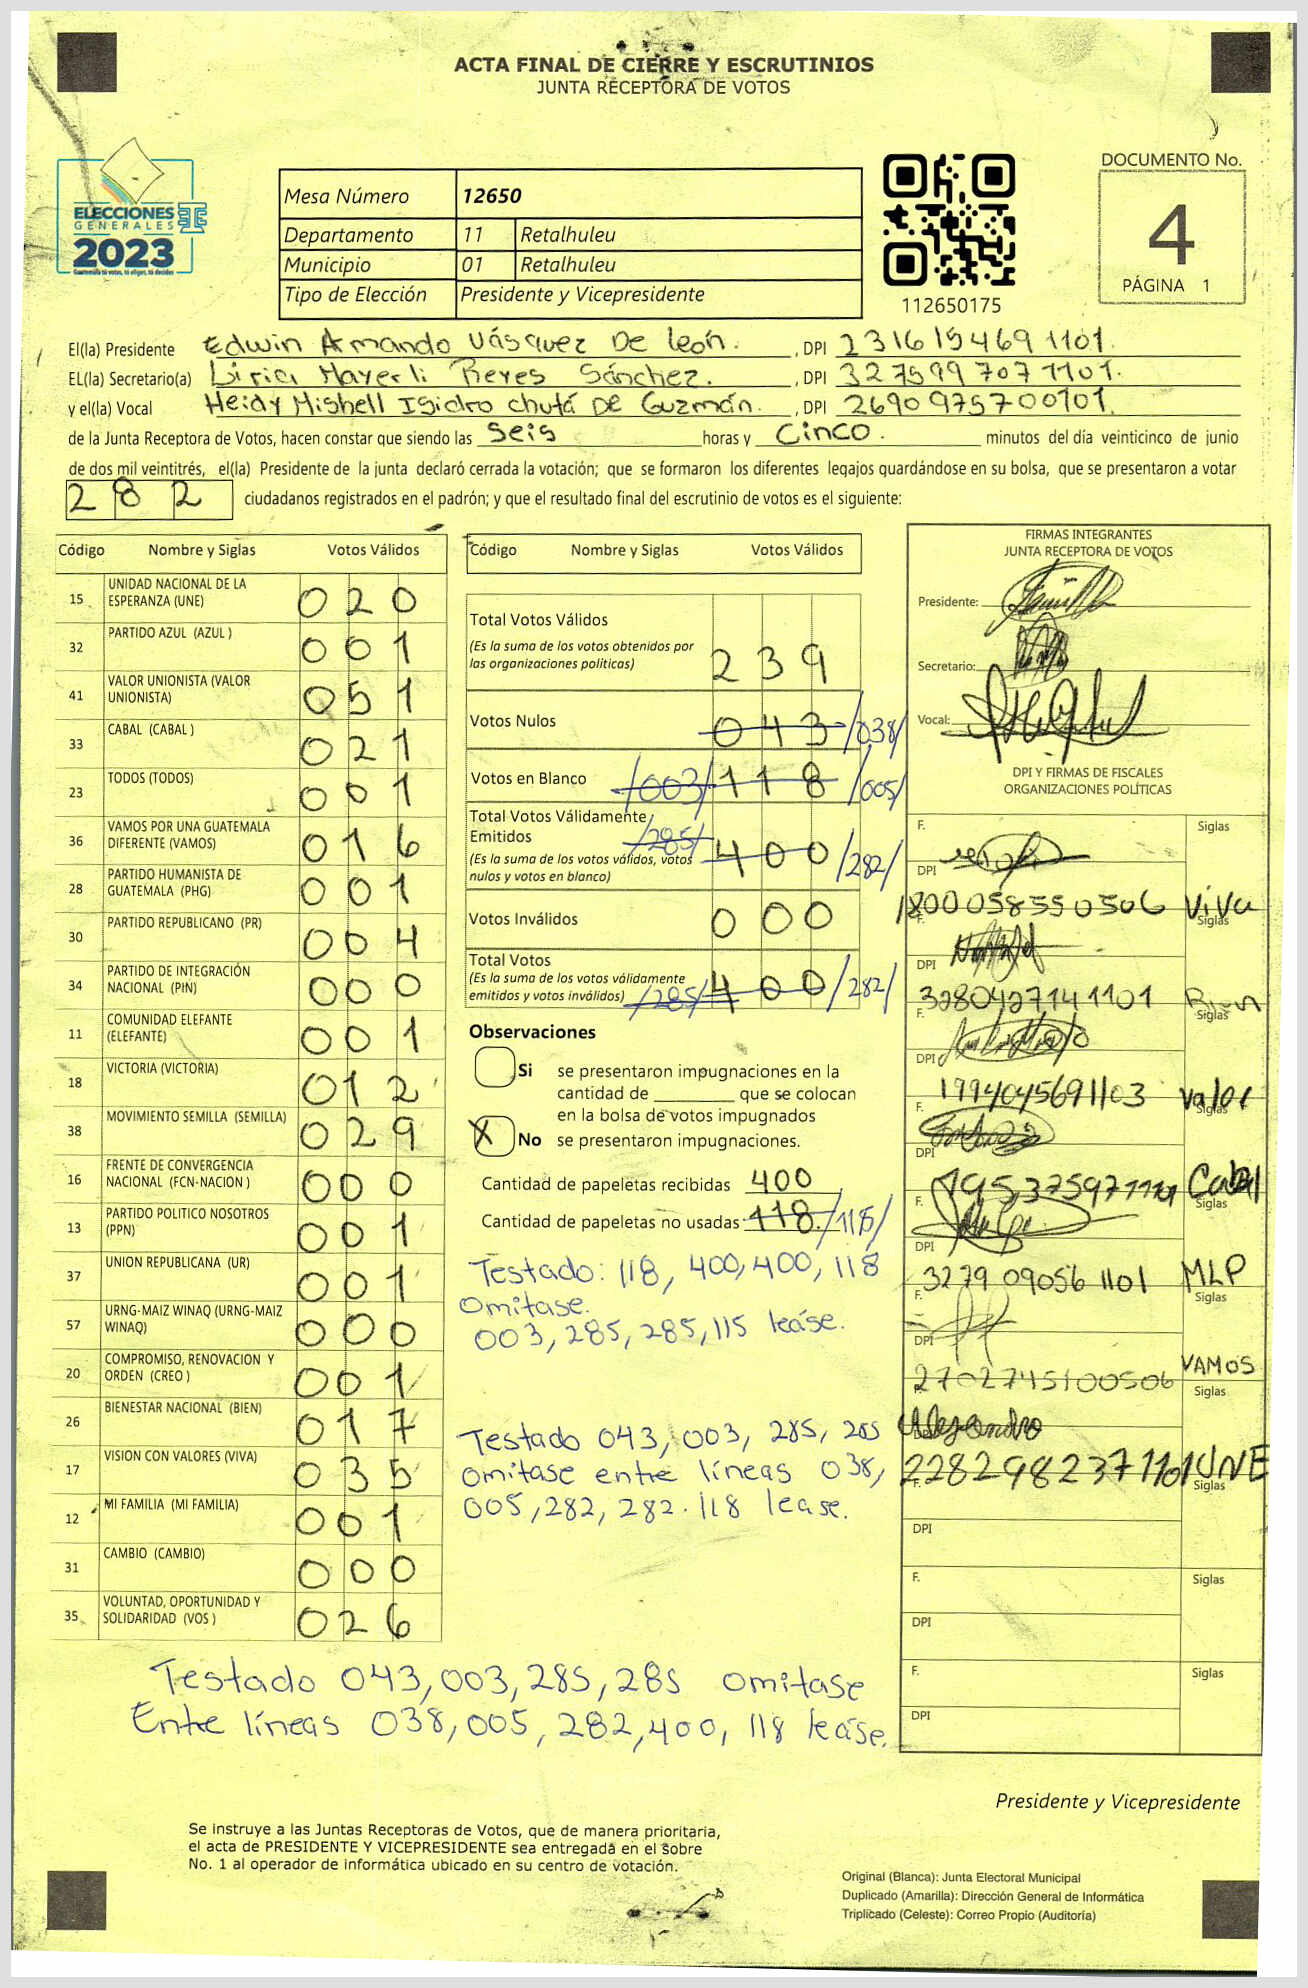 ACTA FINAL DE CIERRE Y ESCRUTINIOS
JUNTA RECEPTORA DE VOTOS
ELECCIONES
GENERALES
2023
Mesa Número 12650
Departamento 11 Retalhuleu
Municipio 01 Retalhuleu
Tipo de Elección Presidente y Vicepresidente
112650175
DOCUMENTO No.
4
PÁGINA 1
El(la) Presidente Edwin Armando Vásquez De león. , DPI 2316154691101.
EL(la) Secretario(a) Liria Mayerli Reyes Sánchez. , DPI 3275997071101.
y el(la) Vocal Heidy Mishell Isidro chutá De Guzmán. , DPI 2690975700101.
de la Junta Receptora de Votos, hacen constar que siendo las Seis horas y Cinco. minutos del día veinticinco de junio
de dos mil veintitrés, el(la) Presidente de la junta declaró cerrada la votación; que se formaron los diferentes legajos quardándose en su bolsa, que se presentaron a votar
282 ciudadanos registrados en el padrón; y que el resultado final del escrutinio de votos es el siguiente:
Código Nombre y Siglas Votos Válidos
15 UNIDAD NACIONAL DE LA ESPERANZA (UNE) 020
32 PARTIDO AZUL (AZUL ) 001
41 VALOR UNIONISTA (VALOR UNIONISTA) 051
33 CABAL (CABAL ) 021
23 TODOS (TODOS) 001
36 VAMOS POR UNA GUATEMALA DIFERENTE (VAMOS) 016
28 PARTIDO HUMANISTA DE GUATEMALA (PHG) 001
30 PARTIDO REPUBLICANO (PR) 004
34 PARTIDO DE INTEGRACIÓN NACIONAL (PIN) 000
11 COMUNIDAD ELEFANTE (ELEFANTE) 001
18 VICTORIA (VICTORIA) 012
38 MOVIMIENTO SEMILLA (SEMILLA) 029
16 FRENTE DE CONVERGENCIA NACIONAL (FCN-NACION ) 000
13 PARTIDO POLITICO NOSOTROS (PPN) 001
37 UNION REPUBLICANA (UR) 001
57 URNG-MAIZ WINAQ (URNG-MAIZ WINAQ) 000
20 COMPROMISO, RENOVACION Y ORDEN (CREO ) 001
26 BIENESTAR NACIONAL (BIEN) 017
17 VISION CON VALORES (VIVA) 035
12 MI FAMILIA (MI FAMILIA) 001
31 CAMBIO (CAMBIO) 000
35 VOLUNTAD, OPORTUNIDAD Y SOLIDARIDAD (VOS ) 026
Código Nombre y Siglas Votos Válidos
Total Votos Válidos
(Es la suma de los votos obtenidos por
las organizaciones políticas) 239
Votos Nulos 043 /038/
Votos en Blanco /003/ 118 /005/
Total Votos Válidamente
Emitidos /285/
(Es la suma de los votos válidos, votos 400 /282/
nulos y votos en blanco)
Votos Inválidos 000
Total Votos
(Es la suma de los votos válidamente
emitidos y votos inválidos) /285/ 400 /282/
Observaciones
Si se presentaron impugnaciones en la
cantidad de ________ que se colocan
en la bolsa de votos impugnados
X No se presentaron impugnaciones.
Cantidad de papeletas recibidas 400
Cantidad de papeletas no usadas 118. /115/
Testado: 118, 400, 400, 118
omitase.
003, 285, 285, 115 leáse.
Testado 043, 003, 285, 285
omitase entre líneas 038,
005, 282, 282. 118 lease.
FIRMAS INTEGRANTES
JUNTA RECEPTORA DE VOTOS
Presidente:
Secretario:
Vocal:
DPI Y FIRMAS DE FISCALES
ORGANIZACIONES POLÍTICAS
F. Siglas
DPI 1800058550506 Viva
F. Siglas
DPI 3280427141101 Bien
F. Siglas
DPI 1994045691103 Valor
F. Siglas
DPI Cabal
F. Siglas
DPI 3279090561101 MLP
F. Siglas
DPI 2702745100506 VAMOS
F. Siglas
Alejandro
DPI 2282982371101 UNE
F. Siglas
DPI
F. Siglas
DPI
F. Siglas
DPI
Testado 043, 003, 285, 285 omitase
Entre líneas 038, 005, 282, 400, 118 leáse.
Presidente y Vicepresidente
Se instruye a las Juntas Receptoras de Votos, que de manera prioritaria,
el acta de PRESIDENTE Y VICEPRESIDENTE sea entregada en el sobre
No. 1 al operador de informática ubicado en su centro de votación.
Original (Blanca): Junta Electoral Municipal
Duplicado (Amarilla): Dirección General de Informática
Triplicado (Celeste): Correo Propio (Auditoría)